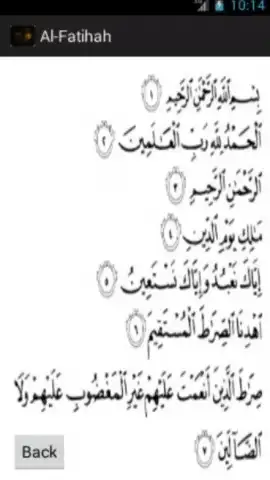 10:14
Al-Fatihah
بِسْمِ ٱللَّهِ ٱلرَّحْمَٰنِ ٱلرَّحِيمِ ١
ٱلْحَمْدُ لِلَّهِ رَبِّ ٱلْعَٰلَمِينَ ٢
ٱلرَّحْمَٰنِ ٱلرَّحِيمِ ٣
مَٰلِكِ يَوْمِ ٱلدِّينِ ٤
إِيَّاكَ نَعْبُدُ وَإِيَّاكَ نَسْتَعِينُ ٥
ٱهْدِنَا ٱلصِّرَٰطَ ٱلْمُسْتَقِيمَ ٦
صِرَٰطَ ٱلَّذِينَ أَنْعَمْتَ عَلَيْهِمْ غَيْرِ ٱلْمَغْضُوبِ عَلَيْهِمْ وَلَا
ٱلضَّآلِّينَ ٧
Back